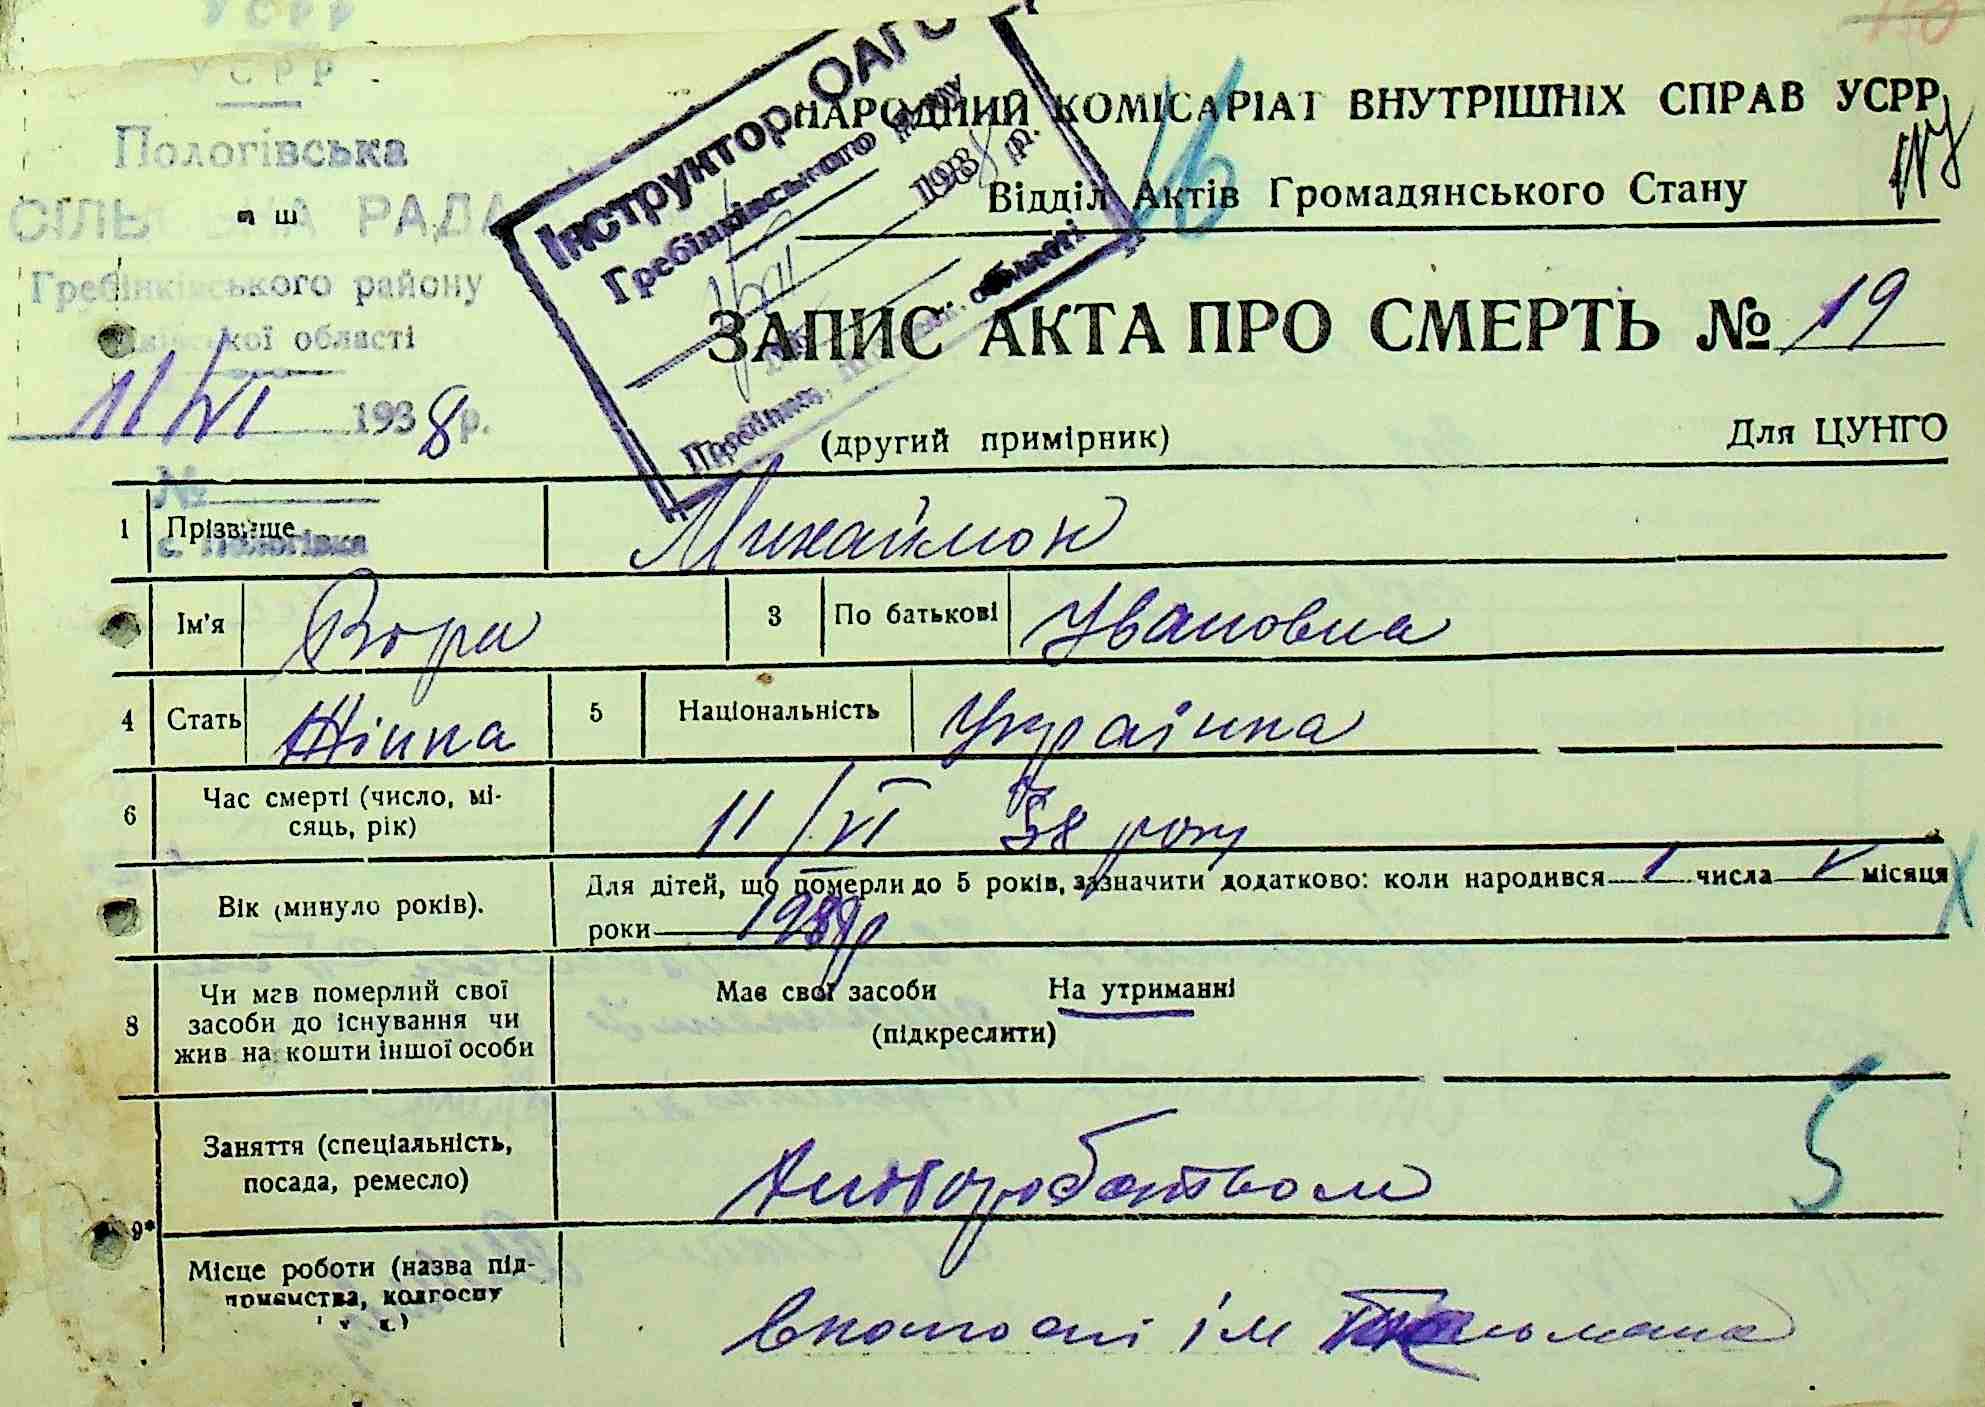 УСРР
УСРР
Пологівська
СІЛЬСЬКА РАДА
Гребінківського району
області
11/VI 1938 р.
№
с. Пологівка
Інструктор ОАГС
Гребінківського
193 р.
області
150
16
НАРОДНИЙ КОМІСАРІАТ ВНУТРІШНІХ СПРАВ УСРР
Відділ Актів Громадянського Стану
ЗАПИС АКТА ПРО СМЕРТЬ № 19
(другий примірник)
Для ЦУНГО
1 Прізвище Михаймон
Ім'я Вора 3 По батькові Увановна
4 Стать Жінка 5 Національність Украінка
6 Час смерті (число, мі-
сяць, рік) 11/VI 38 року
Вік (минуло років).
Для дітей, що померли до 5 років, зазначити додатково: коли народився 1 числа V місяця
роки
8 Чи мав померлий свої
засоби до існування чи
жив на кошти іншої особи
Має свої засоби На утриманні
(підкреслити)
9* Заняття (спеціальність,
посада, ремесло)
5
Місце роботи (назва під-
приємства, колгоспу
і т. д.)
ім